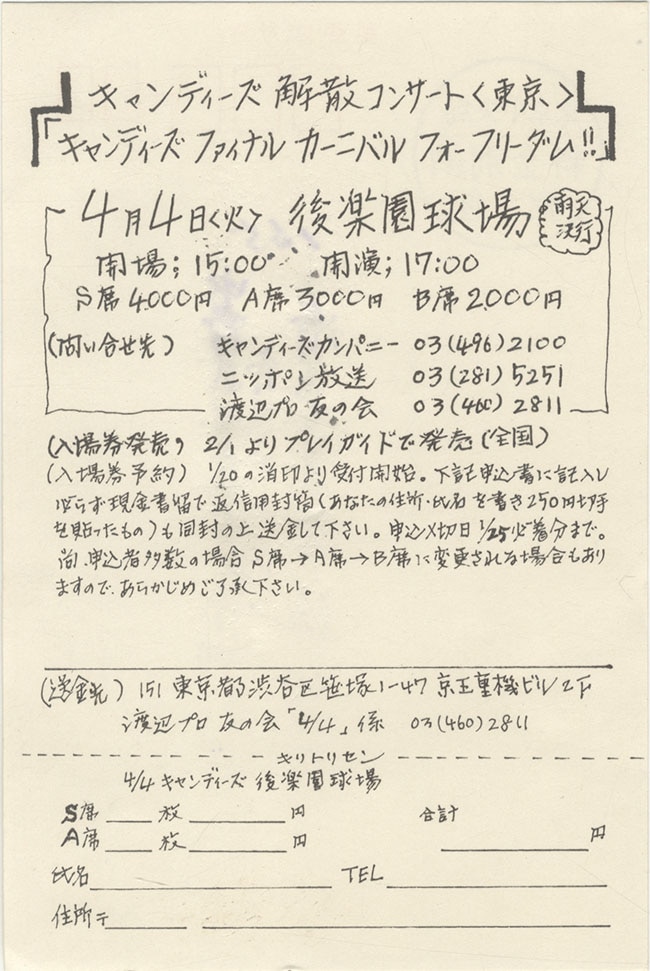 キャンディーズ 解散コンサート〈東京〉
「キャンディーズ ファイナル カーニバル フォー フリーダム!!」
4月4日〈火〉 後楽園球場 雨天決行
開場; 15:00 開演; 17:00
S席 4000円 A席 3000円 B席 2000円
(問い合せ先) キャンディーズカンパニー 03(496)2100
ニッポン放送 03(281)5251
渡辺プロ 友の会 03(460)2811
(入場券発売) 2/1 より プレイガイドで発売 (全国)
(入場券予約) 1/20 の消印より受付開始。下記申込書に記入し
必らず現金書留で返信用封筒(あなたの住所・氏名を書き250円切手
を貼ったもの)も同封の上送金して下さい。申込〆切日 1/25 必着分まで。
尚、申込者多数の場合 S席→A席→B席に変更される場合もあり
ますので、あらかじめご了承下さい。
(送金先) 151 東京都渋谷区笹塚1-47 京王重機ビル2F
渡辺プロ 友の会「4/4」係 03(460)2811
キリトリセン
4/4 キャンディーズ 後楽園球場
S席 枚 円 合計
A席 枚 円 円
氏名 TEL
住所〒